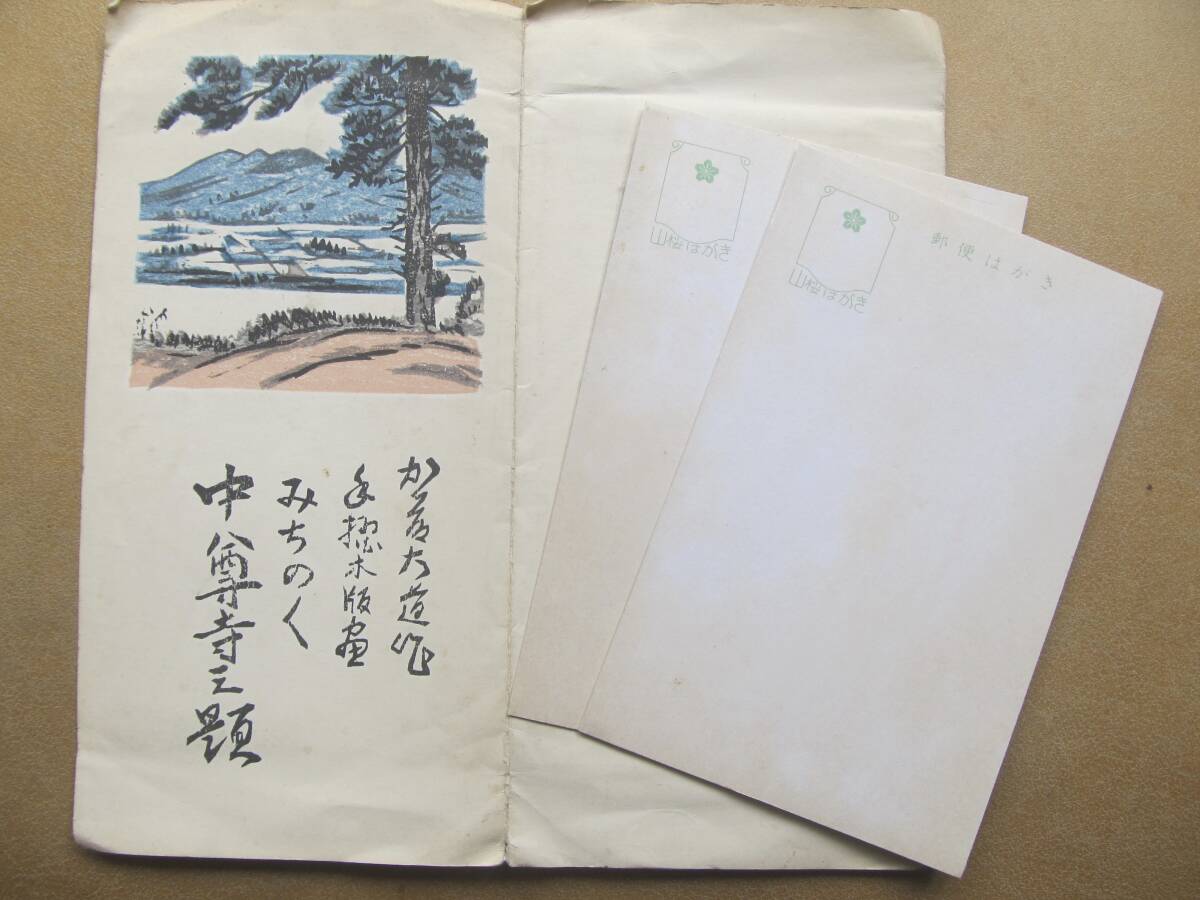 かつ若大道作
手摺木版画
みちのく
中尊寺三題
山桜はがき
山桜はがき
郵便はがき